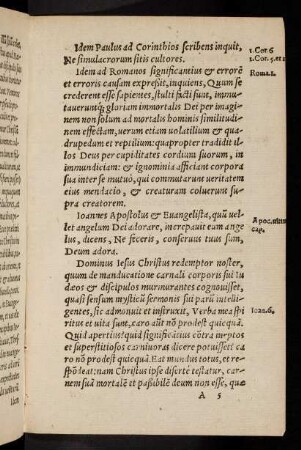 Idem Paulus ad Corinthios scribens inquit,
Ne simulacrorum sitis cultores.
1. Cor 6
1. Cor. 5. et 1
Idem ad Romanos significantius & errorē
et erroris causam expreßit, inquiens, Quum se
Roma. 1.
crederent esse sapientes, stulti facti sunt, immu-
tauerunt́q; gloriam immortalis Dei per imagi-
nem non solum ad mortalis hominis similitudi-
nem effectam, uerum etiam uolatilium & qua-
drupedum et reptilium: quapropter tradidit il-
los Deus per cupiditates cordum suorum, in
immundiciam: & ignominia afficiant corpora
sua inter se mutuò, qui commutarunt ueritatem
eius mendacio, & creaturam coluerunt su-
pra creatorem.
Ioannes Apostolus & Euangelista, quū uel-
let angelum Dei adorare, increpauit eum ange
lus, dicens, Ne feceris, conseruus tuus sum,
Deum adora.
Apoc. ultim
cap.
Dominus Iesus Christus redemptor noster,
quum de manducatione carnali corporis sui Iu
dæos & discipulos murmurantes cognouisset,
quasi sensum mystici sermonis sui parū intelli-
gentes, sic admonuit et instruxit, Verba mea spi
ritus et uita sunt, caro aūt nō prodest quicquā.
Ioan. 6.
Quid apertius? quid significatius cōtra ineptos
et superstitiosos carniuoras dicere potuisset? ca
ro nō prodest quicquā. Eat mundus totus, et re
spōdeat: nam Christus ipse disertè testatur, car-
nem suā mortalē et paßibilē deum non esse, quæ
A 5